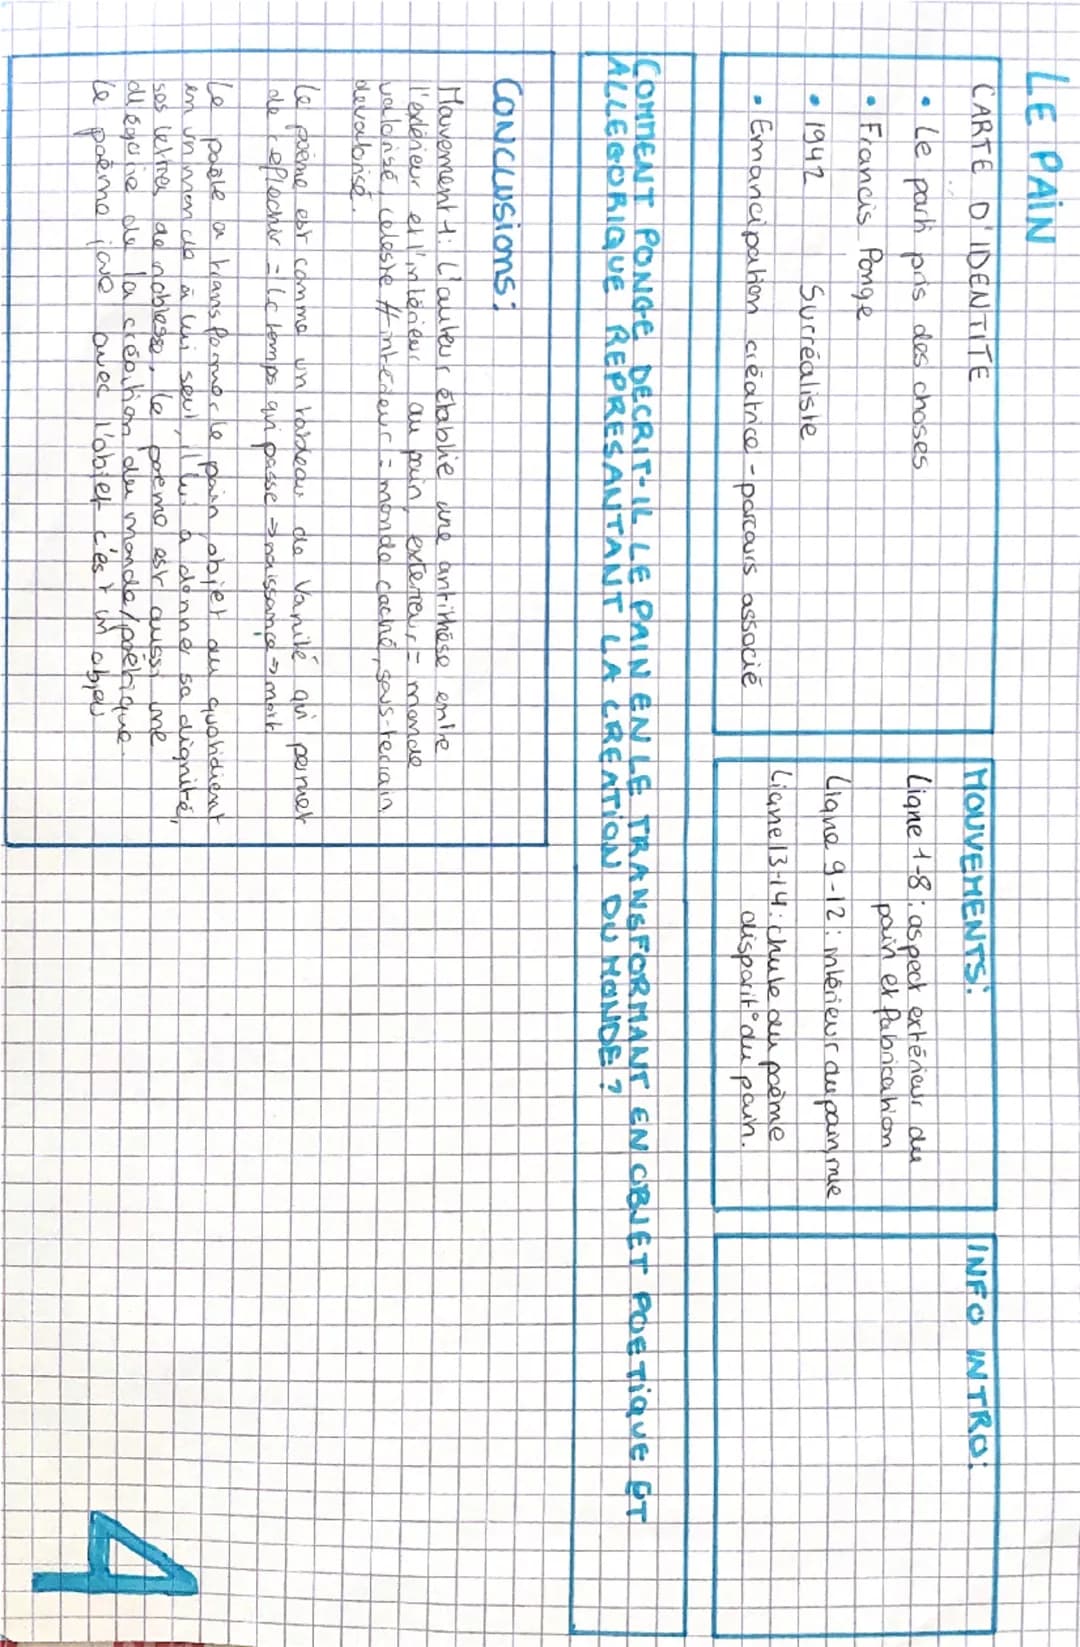 LE PAIN
CARTE D'IDENTITE
• Le parti pris des choses
• Francis Ponge
• 1942 Surréaliste
• Emancipation créatrice - parcours associé
MOUVEMENTS:
Ligne 1-8: aspect extérieur du
pain et fabrication
Ligne 9-12: intérieur du pain, mie
Ligne 13-14: chute du poème
disparit° du pain.
INFO INTRO:
COMMENT PONGE DECRIT-IL LE PAIN EN LE TRANSFORMANT EN OBJET POETIQUE ET
ALLEGORIQUE REPRESANTANT LA CREATION DU MONDE?
CONCLUSIONS:
Mouvement 1: L'auteur établie une antithèse entre
l'extérieur et l'intérieur du pain, exterieur = monde
valorisé, celeste # intérieur = monde caché, sous-terrain
devalorisé.
Le poème est comme un tableau de Vanité qui permet
de reflechir = le temps qui passe => naissance => mort
Le poète a transformer le pain, objet du quotidient
en un monde à lui seul, il lui a donner sa dignité,
ses lettres de noblesse, le poeme est aussi une
allégorie de la création du monde/poétique.
Le poème joue avec l'objet c'est un objeu
4